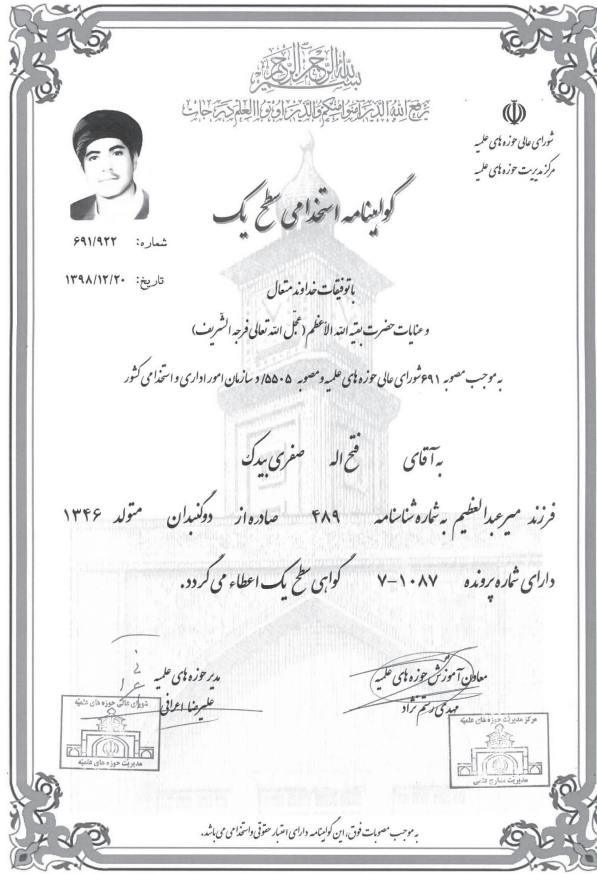 بسم الله الرحمن الرحیم
یرفع الله الذین آمنوا منکم والذین اوتوا العلم درجات
شورای عالی حوزه های علمیه
مرکز مدیریت حوزه های علمیه
گواهینامه استخدامی سطح یک
شماره: ۶۹۱/۹۲۲
تاریخ: ۱۳۹۸/۱۲/۲۰
باتوفیقات خداوند متعال
و عنایات حضرت بقیه الله الأعظم (عجّل الله تعالی فرجه الشّریف)
به موجب مصوبه ۶۹۱ شورای عالی حوزه های علمیه و مصوبه ۵۵۰۵/د سازمان امور اداری و استخدامی کشور
به آقای فتح اله صفری بیدک
فرزند میرعبدالعظیم به شماره شناسنامه ۴۸۹ صادره از دوگنبدان متولد ۱۳۴۶
دارای شماره پرونده ۷-۱۰۸۷ گواهی سطح یک اعطاء می گردد.
معاون آموزش حوزه های علمیه
مهدی رستم نژاد
مدیر حوزه های علمیه
علیرضا اعرافی
مرکز مدیریت حوزه های علمیه
مدیریت مدارج علمی
شورای عالی حوزه های علمیه
مدیریت حوزه های علمیه
به موجب مصوبات فوق، این گواهینامه دارای اعتبار حقوقی واستخدامی می باشد.